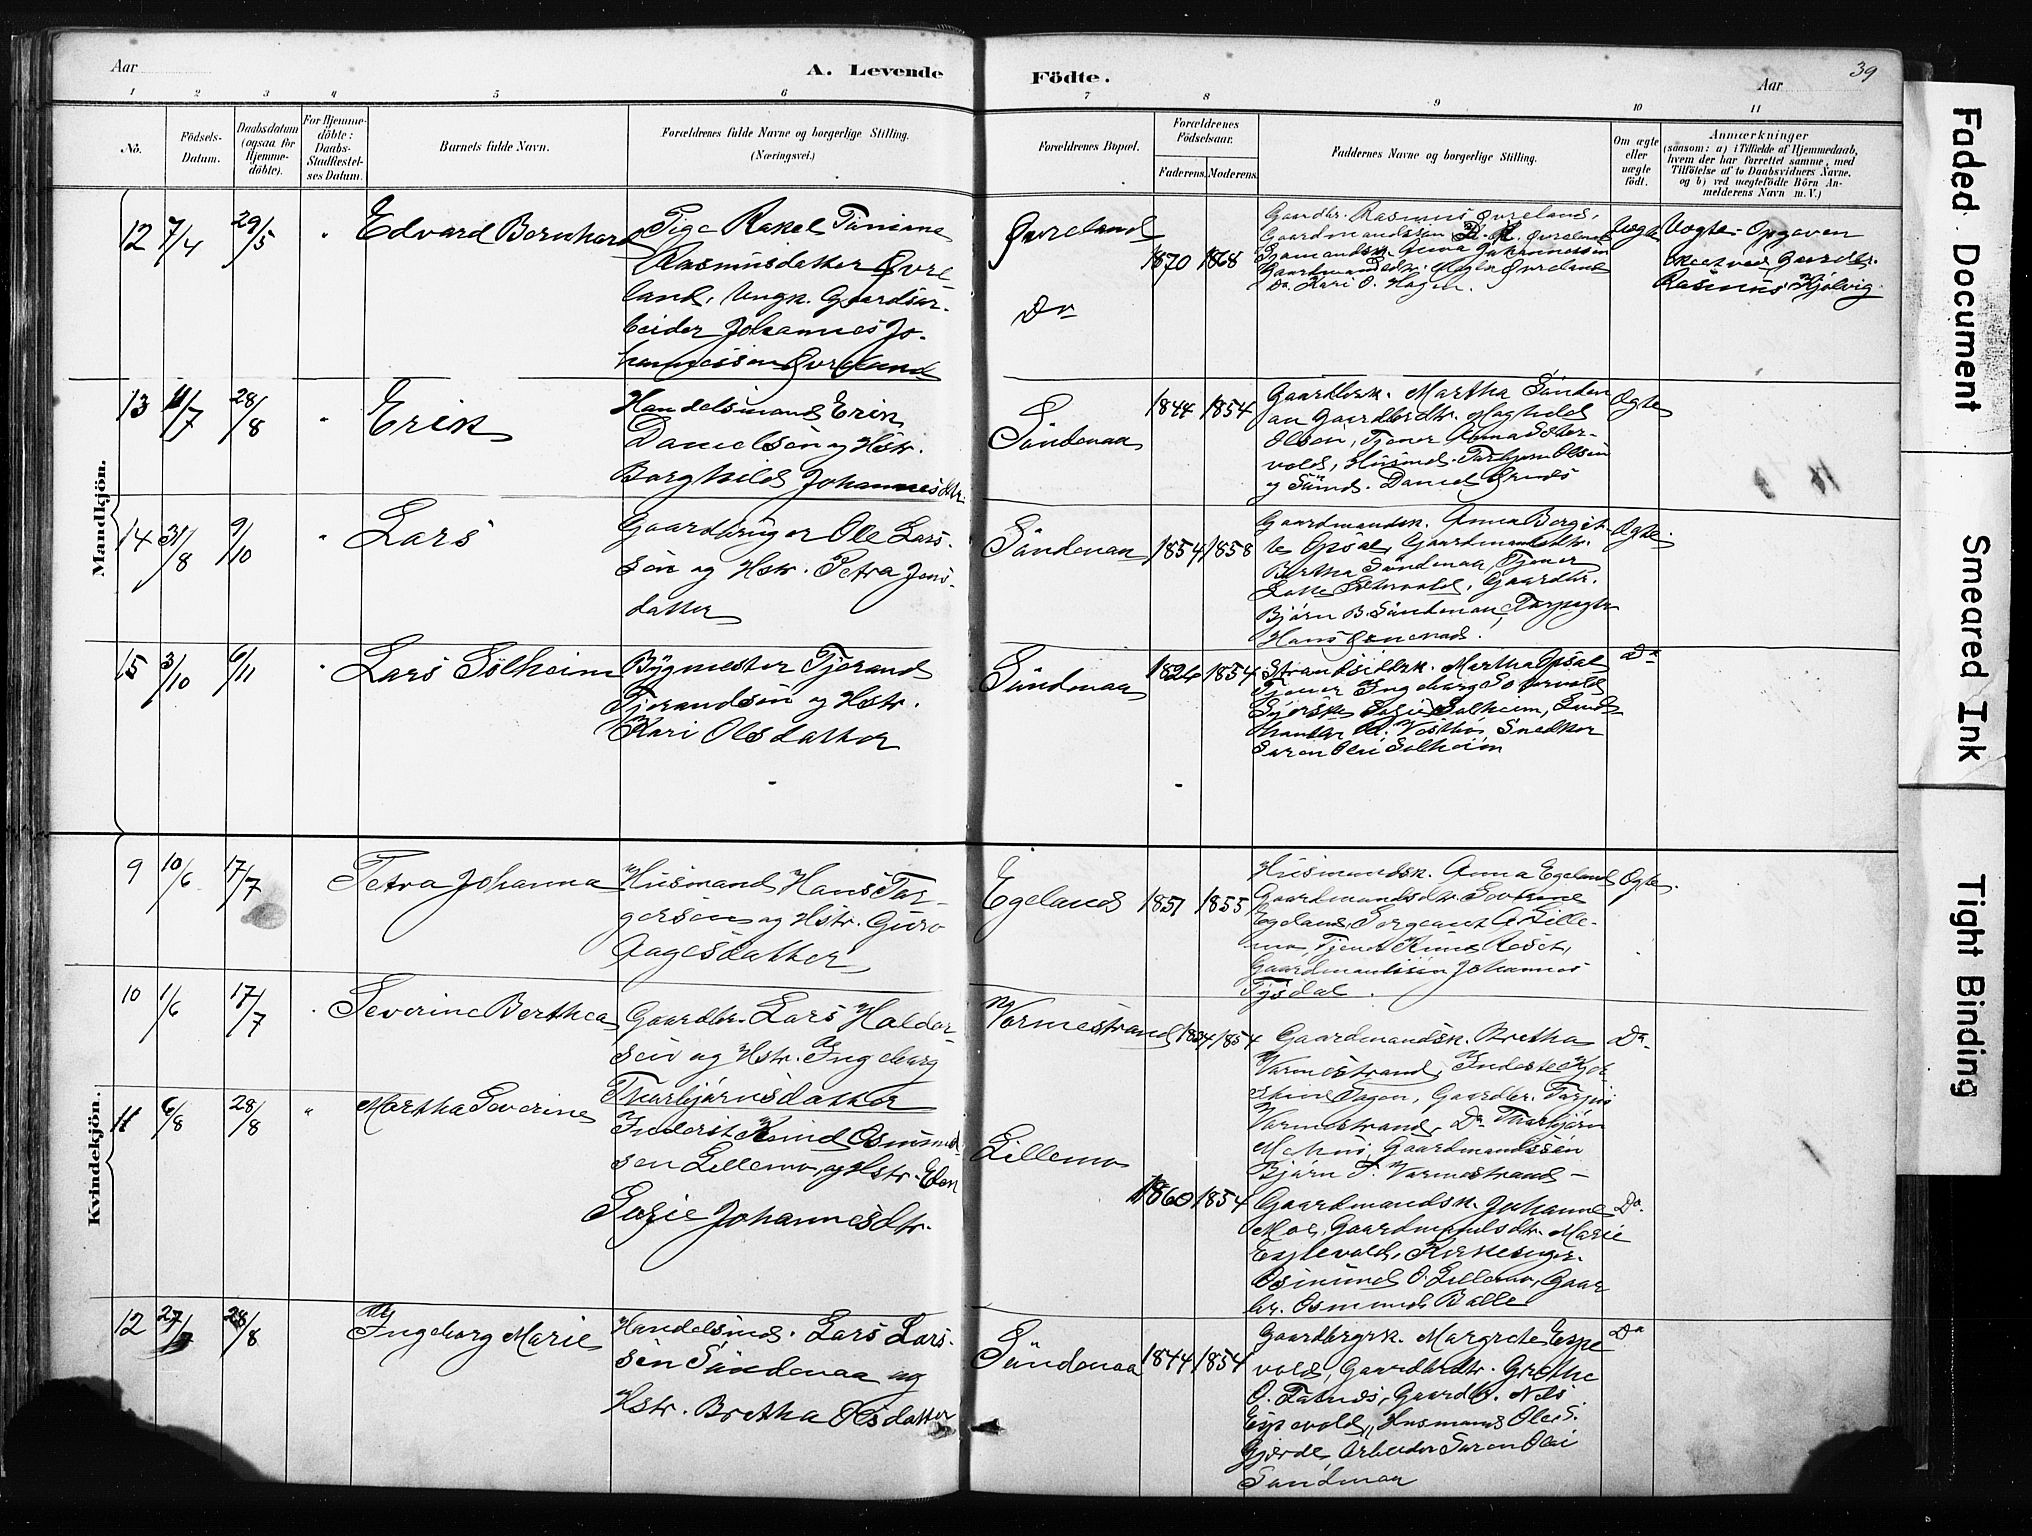 Aar
A. Levende
Födte.
Aar
39
1 2 3 4 5 6 7 8 9 10 11
No.
Födsels-
Datum.
Daabsdatum
(ogsaa for
Hjemme-
döbte).
For Hjemme-
döbte:
Daabs-
Stadfæstel-
ses Datum.
Barnets fulde Navn.
Forældrenes fulde Navne og borgerlige Stilling.
(Næringsvei.)
Forældrenes Bopæl.
Forældrenes
Födselsaar.
Faderens.
Moderens.
Faddernes Navne og borgerlige Stilling.
Om ægte
eller
uægte
födt.
Anmærkninger
(saasom: a) i Tilfælde af Hjemmedaab,
hvem der har forrettet samme, med
Tilföielse af to Daabsvidners Navne,
og b) ved uægtefödte Börn An-
melderens Navn m. V.)
Mandkjön.
12 7/4 29/5 " Edvard Bernhard
Pige Rakel
Rasmusdatter Øvre-
land, Ungk. Gaardsar-
beider Johannes Jo-
hannessen Øvreland
Øvreland
Do
1870 1868
Gaardbr. Rasmus Øvreland,
Gaardmandssøn Øvreland
Øvreland
Do Kari O. Hagen.
Uegte
Uegte. Opgaven
Gaardbr.
Rasmus Kjölvig.
13 11/7 28/8 " Erik
Handelsmand Erik
Danielsen og Hstr.
Borghild Johannesdtr.
Söndenaa
1844 1854
Gaardbrk. Martha Sönden
aa Gaardbrdtr. Maghild
Olsen, Tjener Anna Sæter-
vold, Husmd. Torbjørn Olsen
og Daniel
Ogte
14 31/8 9/10 " Lars
Gaardbruger Ole Lars-
sön og Hstr. Petra Jens-
datter
Söndenaa
1854 1858
Gaardmandsk. Anna Bergit-
te Opsal, Gaardmandsdtr.
Bertha Söndenaa Tjener
Gaardbr.
Bjørn B. Söndenaa,
Hans
Ogte.
15 3/10 6/11 " Lars Solheim
Bygmester Tjerand
Tjerandsön og Hstr.
Kari Olsdatter
Söndenaa
1826 1854
Strandsidderk. Martha Opsal
Tjener Ingeborg Sætervold
Solheim,
Snedker
Søren Olai Solheim
Do
Kvindekjön.
9 10/6 17/7 Petra Johanna
Husmand Hans Tor-
gersön og Hstr. Guro
Aagesdatter
Egeland
1851 1855
Husmandsk. Anna Egeland
Gaardmandsdtr. Severine
Egeland, Sergeant O. Lille-
mo, Tjener Knud
Gaardmandssön Johannes
Tysdal.
Ogte.
10 1/6 17/7 " Severine Berthea
Gaardbr. Lars Haldor-
sen og Hstr. Ingeborg
Thorbjørnsdatter
Vormestrand
1834 1854
Gaardmandsk. Bretha
Vormestrand,
Gaardbr. Torjus
Vormestrand, Do Thorbjørn
Gaardmandssön
Bjørn T. Vormestrand
Do
11 6/8 28/8 " Martha Severine
Inderst Knud Osmund-
sen Lillemo, og Hstr. Elen
Serie Johannesdtr.
Lillemo
1860 1854
Gaardmandsk. Johanne
Moe, Gaardmandsdtr. Marie
Espevold, Kirkesanger
Osmund O. Lillemo, Gaar
br. Osmund Bolle
Do
12 28/8 Ingeborg Marie
Handelsmd. Lars Lars-
sön Söndenaa og
Hstr. Bretha Olsdatter
Söndenaa
1844 1854
Gaardbrgrk. Margrete Espe
vold, Gaardbrdtr. Grethe
O. Gaardbr. Nels
Espevold, Husmand Ole S.
Gjerde, Arbeider Søren Olai
Söndenaa
Do
Faded Document
Smeared Ink
Tight Binding